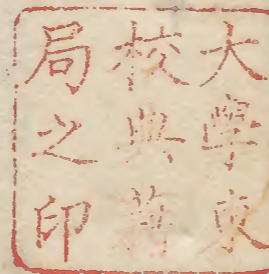 大學東
校典籍
局之印